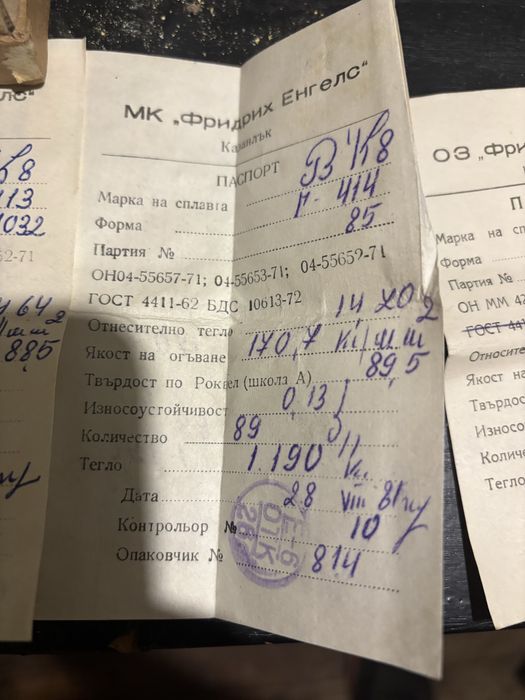 МК „Фридрих Енгелс“
Казанлък
ПАСПОРТ
Марка на сплавта ВК8
Форма Н-414
Партия № 85
ОН04-55657-71; 04-55653-71; 04-55659-71
ГОСТ 4411-62 БДС 10613-72
Относително тегло 14 70
Якост на огъване 170,7 кг/мм2
Твърдост по Роквел (школа А) 89,5
Износоустойчивост 0,13
Количество 89
Тегло 1.190 кг
Дата 28 VIII 81
Контрольор № 10
Опаковчик № 814
лс“
8
413
1032
52-71
64
885
ОЗ „Фри
П
Марка на спл
Форма
Партия №
ОН ММ 4
ГОСТ 44
Относите
Якост на
Твърдост
Износо
Количе
Тегло